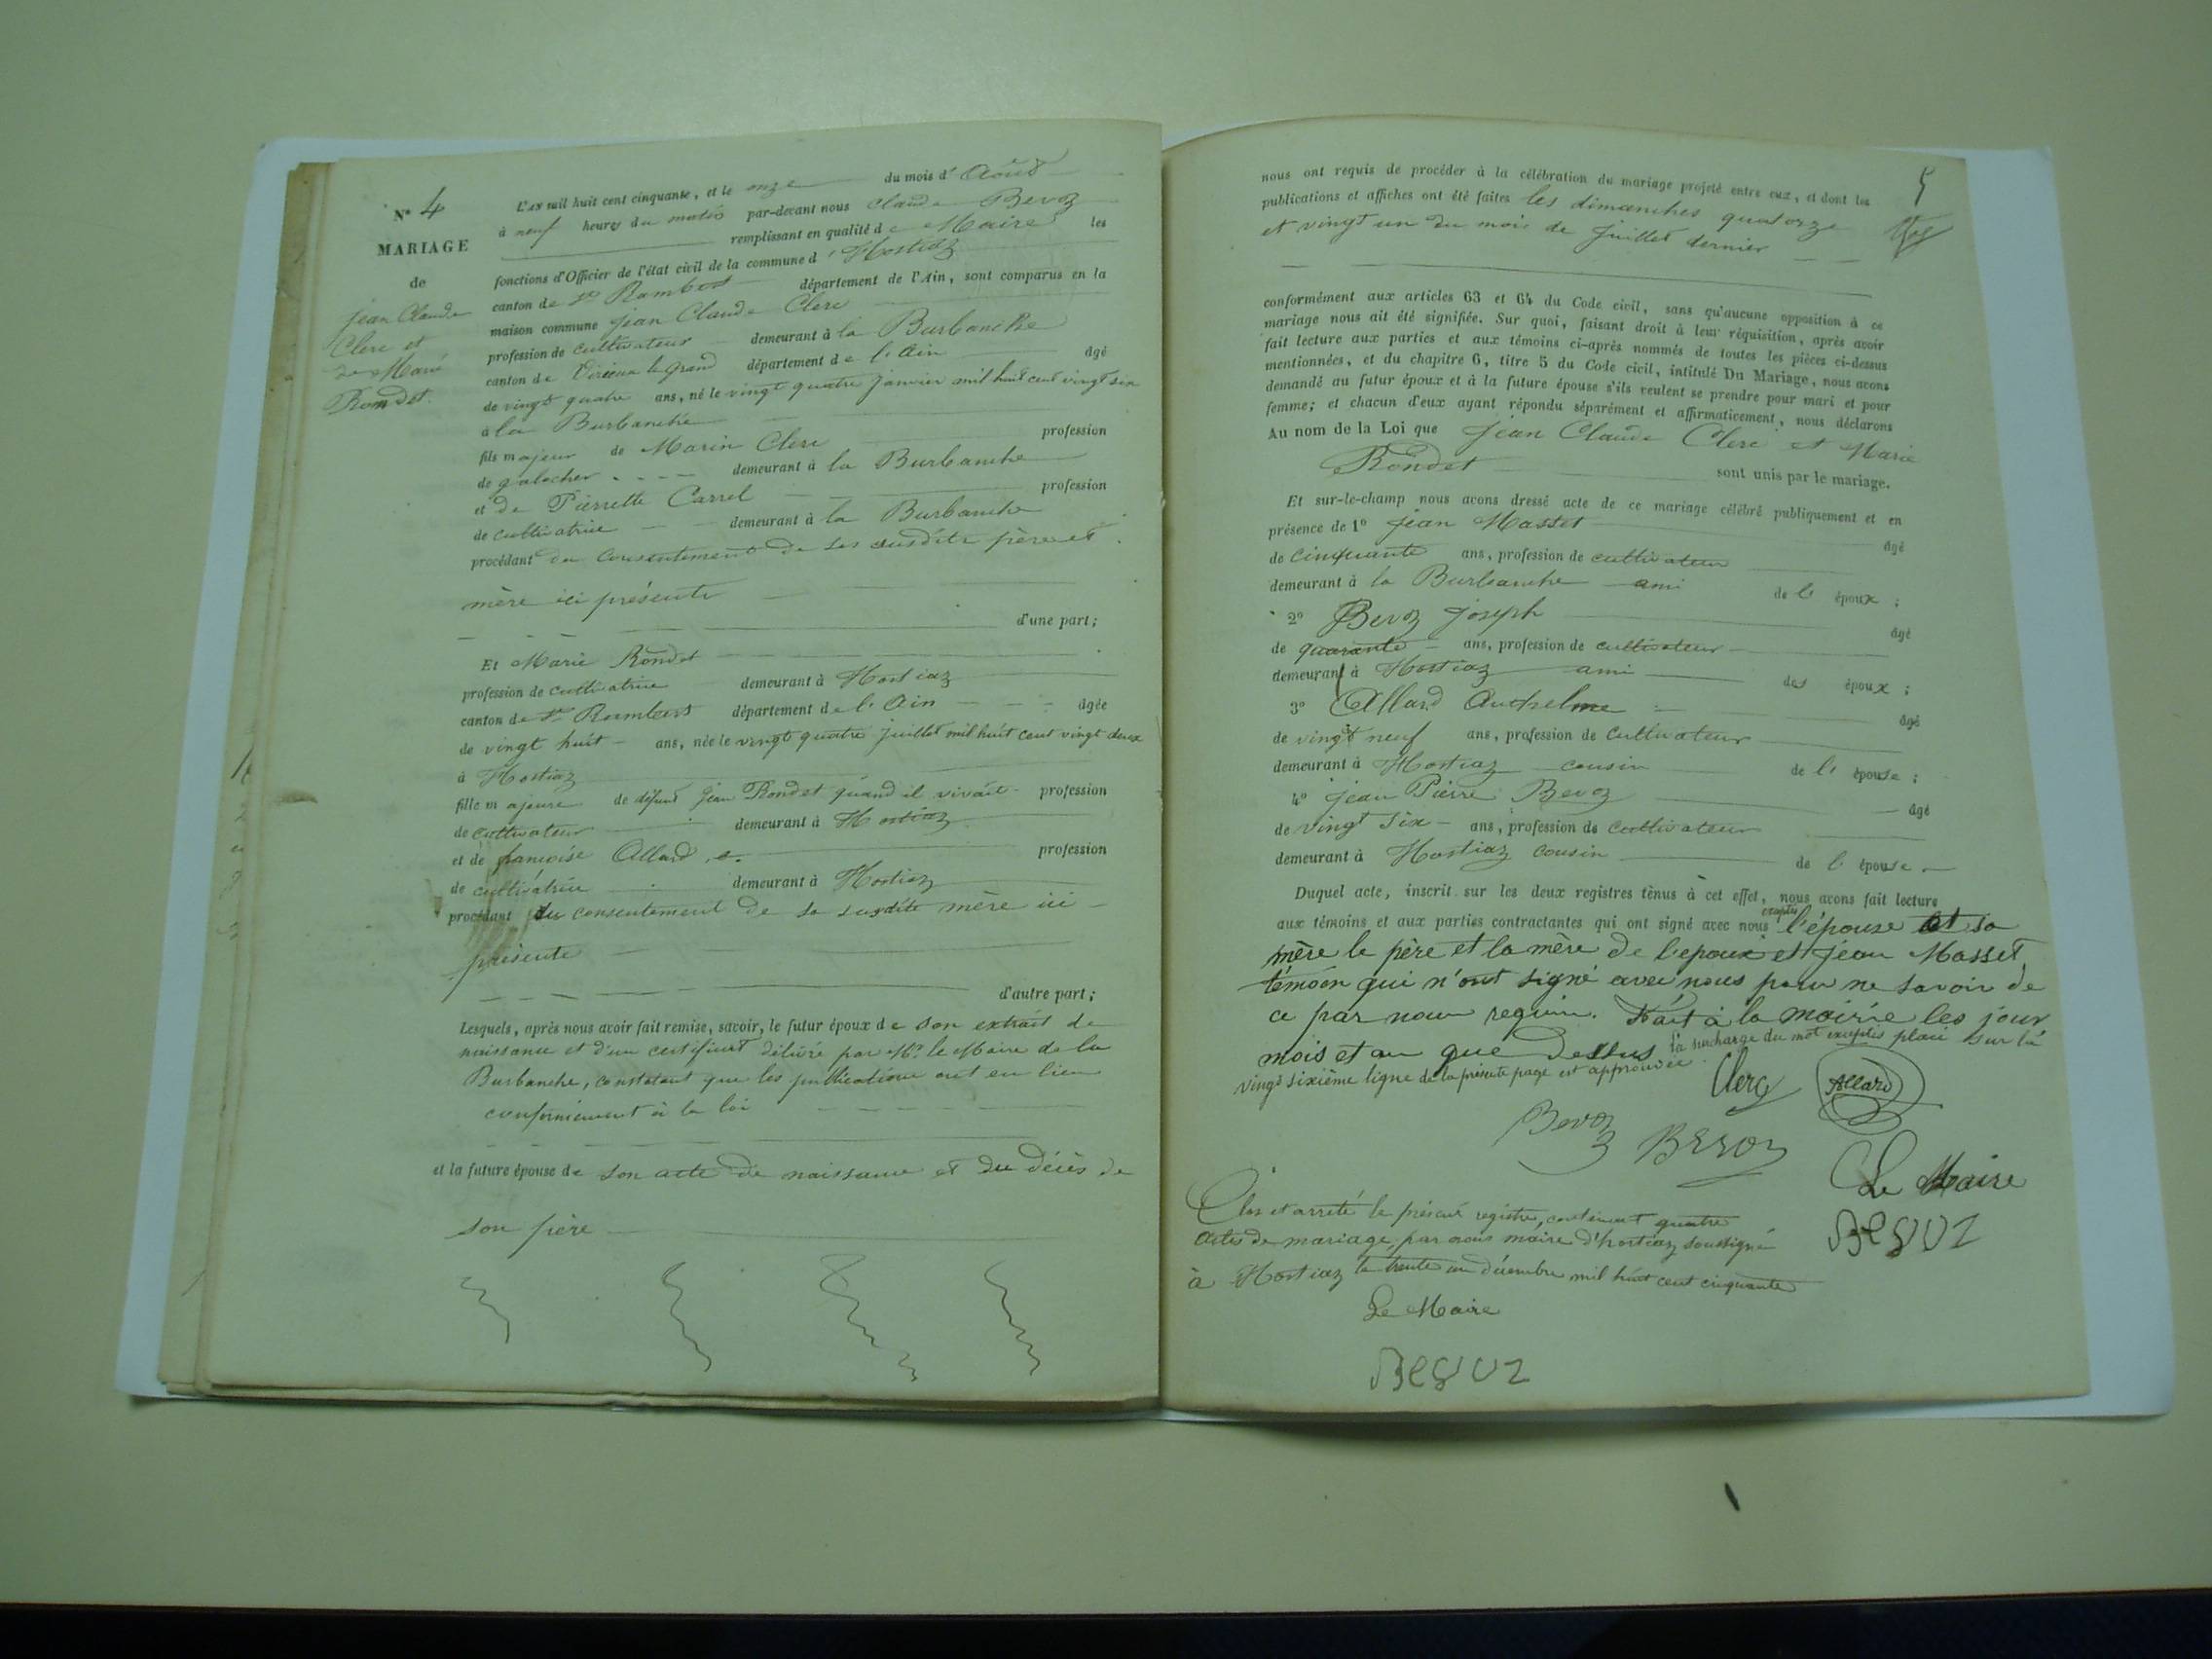 N° 4
MARIAGE
de
Jean Claude
Clerc et
de Marie
Rondet.
L'AN mil huit cent cinquante, et le onze du mois d'Août
à neuf heures du matin par-devant nous Claude Bevoz
remplissant en qualité de Maire les
fonctions d'Officier de l'état civil de la commune d'Hostiaz
canton de St Rambert département de l'Ain, sont comparus en la
maison commune Jean Claude Clerc
profession de cultivateur demeurant à la Burbanche
canton de Virieux le grand département de l'Ain âgé
de vingt quatre ans, né le vingt quatre janvier mil huit cent vingt six
à la Burbanche
fils majeur de Marin Clerc profession
de galocher demeurant à la Burbanche
et de Pierrette Carrel profession
de cultivatrice demeurant à la Burbanche
procédant du consentement de ses susdits père et
mère ici présents
d'une part;
Et Marie Rondet
profession de cultivatrice demeurant à Hostiaz
canton de St Rambert département de l'Ain âgée
de vingt huit ans, née le vingt quatre juillet mil huit cent vingt deux
à Hostiaz
fille majeure de défunt Jean Rondet quand il vivait profession
de cultivateur demeurant à Hostiaz
et de françoise Allard profession
de cultivatrice demeurant à Hostiaz
procédant du consentement de sa susdite mère ici
présente
d'autre part;
Lesquels, après nous avoir fait remise, savoir, le futur époux de son extrait de
naissance et d'un certificat délivré par Mr le Maire de la
Burbanche, constatant que les publications ont eu lieu
conformément à la loi
et la future épouse de son acte de naissance et du décès de
son père
5
nous ont requis de procéder à la célébration du mariage projeté entre eux, et dont les
publications et affiches ont été faites les dimanches quatorze
et vingt un du mois de juillet dernier
conformément aux articles 63 et 64 du Code civil, sans qu'aucune opposition à ce
mariage nous ait été signifiée. Sur quoi, faisant droit à leur réquisition, après avoir
fait lecture aux parties et aux témoins ci-après nommés de toutes les pièces ci-dessus
mentionnées, et du chapitre 6, titre 5 du Code civil, intitulé Du Mariage, nous avons
demandé au futur époux et à la future épouse s'ils veulent se prendre pour mari et pour
femme; et chacun d'eux ayant répondu séparément et affirmativement, nous déclarons
Au nom de la Loi que Jean Claude Clerc et Marie
Rondet sont unis par le mariage.
Et sur-le-champ nous avons dressé acte de ce mariage célébré publiquement et en
présence de 1° Jean Masset âgé
de cinquante ans, profession de cultivateur
demeurant à la Burbanche ami de l'époux;
2° Bevoz Joseph âgé
de quarante ans, profession de cultivateur
demeurant à Hostiaz ami des époux;
3° Allard Anthelme âgé
de vingt neuf ans, profession de cultivateur
demeurant à Hostiaz cousin de l'épouse;
4° Jean Pierre Bevoz âgé
de vingt six ans, profession de cultivateur
demeurant à Hostiaz cousin de l'épouse
Duquel acte, inscrit sur les deux registres tenus à cet effet, nous avons fait lecture
aux témoins et aux parties contractantes qui ont signé avec nous exceptés l'épouse et sa
mère le père et la mère de l'epoux et Jean Masset
témoin qui n'ont signé avec nous pour ne savoir de
ce par nous requis. Fait à la mairie les jour
mois et an que dessus la surcharge du mot exceptés placé sur la
vingt sixième ligne de la présente page est approuvée
Clerc Allard
Bevoz Bevoz
Le Maire
Bevoz
Clos et arrêté le présent registre, contenant quatre
actes de mariage, par nous maire d'hostiaz soussigné
à Hostiaz le trente un décembre mil huit cent cinquante
Le Maire
Bevoz